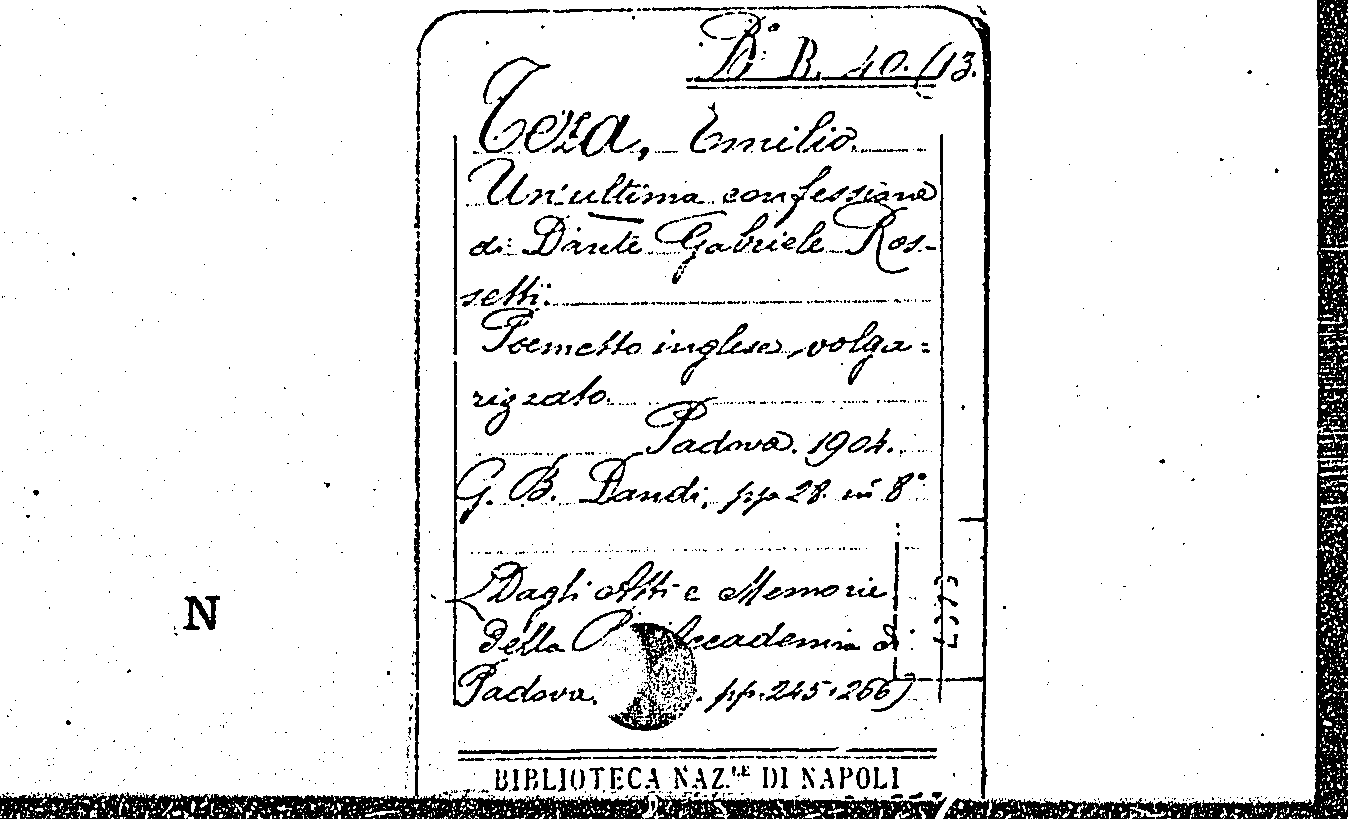 Bª B. 40. (13.
Teza, Emilio.
Un'ultima confessione
di Dante Gabriele Ros-
setti.
Poemetto inglese, volga=
rizzato.
Padova. 1904.
G. B. Randi, pp. 28. in 8°
(Dagli Atti e Memorie
N
della Accademia di
Padova. pp. 245-266)
BIBLIOTECA NAZ.LE DI NAPOLI